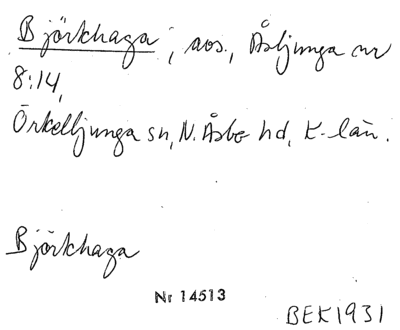 Björkhaga, avs., Åsljunga nr
8:14,
Örkelljunga sn, N. Åsbo hd, K-län.
Björkhaga
Nr 14513
BEK1931